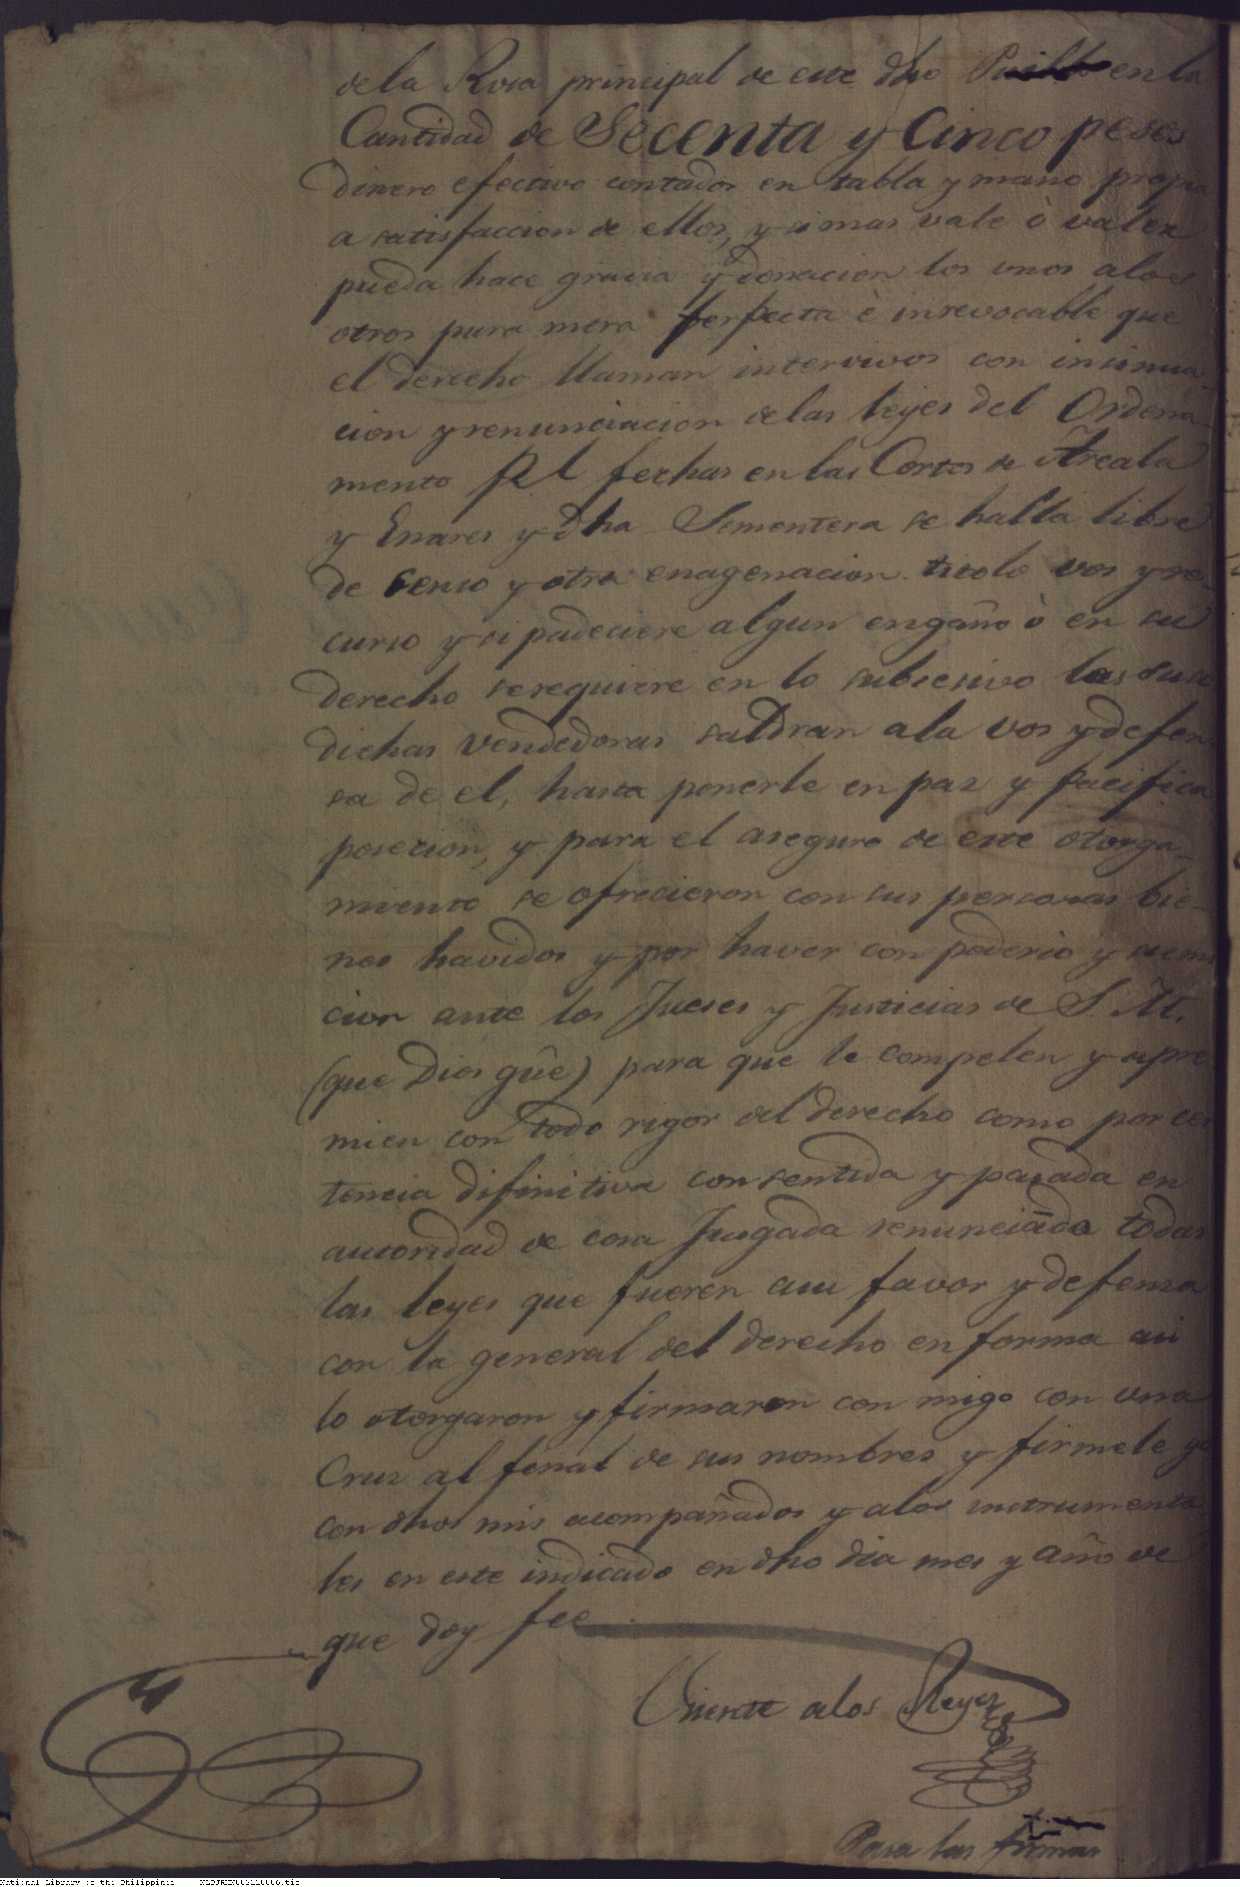 de la Rosa principal de este dho Pueblo en la
Cantidad de Secenta y Cinco pesos
dinero efectivo contados en tabla y mano propia
a satisfaccion de ellos, y si mas vale ò valer
pueda hace gracia y donacion los unos a los
otros pura mera perfecta è inrevocable que
el derecho llaman intervivos con incinua-
cion y renunciacion de las leyes del Ordena-
mento Rl fechas en las Cortes de Arcala
y Enares y dha Sementera se halla libre
de Censo y otra enagenacion titolo vos y re-
curso y si padeciere algun engaño ò en su
derecho se requiere en lo subcesivo las suso
dichas vendedoras saldran a la vos y defen-
sa de el, hasta ponerle en paz y pacifica
posecion, y para el aseguro de este otorga-
miento se ofrecieron con sus personas bie-
nes havidos y por haver con poderio y sumi
cion ante los Jueses y Justicias de S. M.
(que Dios gũe) para que le compelen y apre
mien con todo rigor del derecho como por cen
tencia difinitiva consentida y pasada en
autoridad de cosa Jusgada renunciādo todas
las leyes que fueren a su favor y defensa
con la general del derecho en forma asi
lo otorgaron y firmaron con migo con una
Cruz al fenal de sus nombres y firmele yo
con dhos mis acompañados y a los instrumenta
les en este indicado en dho dia mes y año de
que doy fee
Vicente a los Reyes
Pasa las firmas
National Library of the Philippines